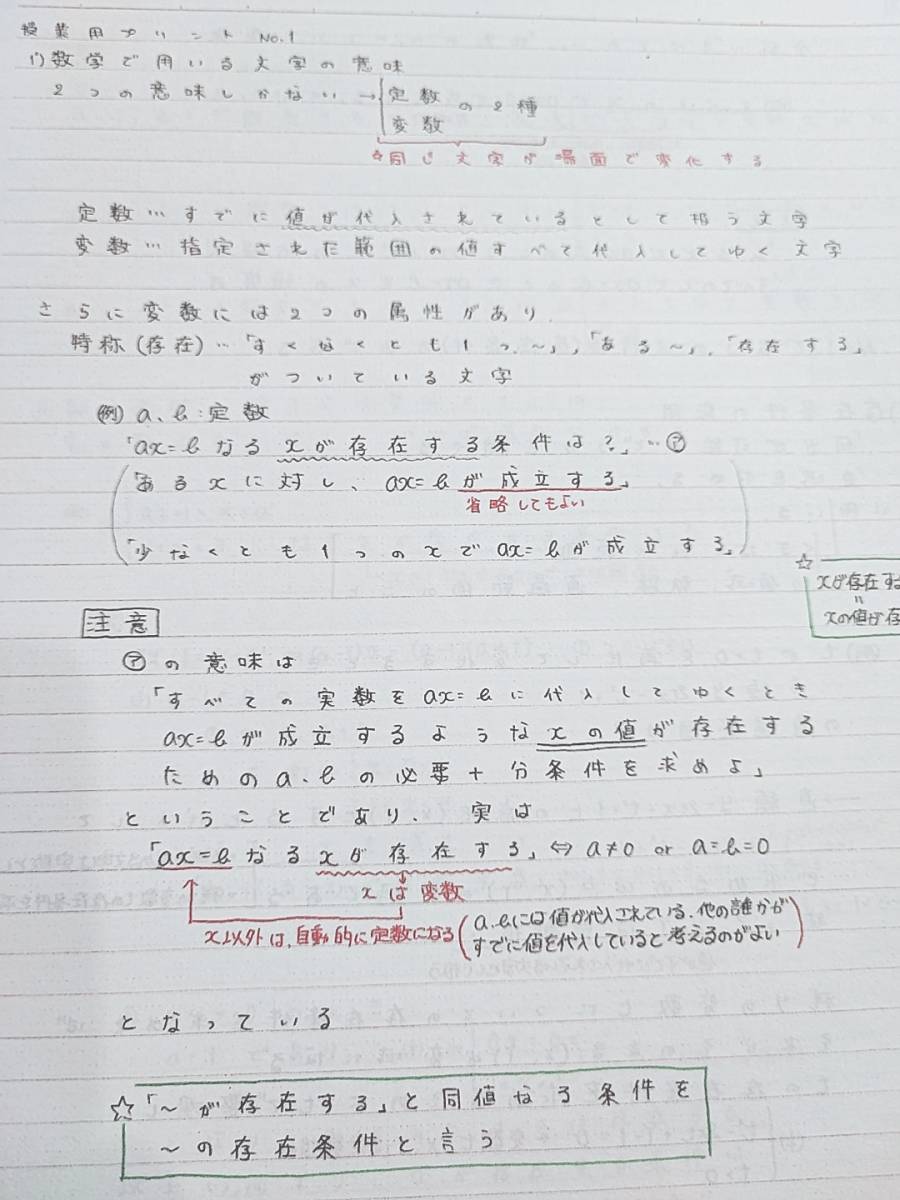 授業用プリント No.1
1) 数学で用いる文字の意味
2つの意味しかない→{定数 変数 の2種
☆同じ文字が場面で変化する
定数…すでに値が代入されているとして扱う文字
変数…指定された範囲の値すべて代入してゆく文字
さらに変数には2つの属性があり
特称(存在)…「すくなくとも1つ、~」,「ある~」,「存在する」
がついている文字
(例) a、b:定数
「ax=bなるxが存在する条件は?」…㋐
「あるxに対し、ax=bが成立する」
省略してもよい
「少なくとも1つのxでax=bが成立する」
☆
xが存在す
=
xの値が存
注意
㋐の意味は
「すべての実数をax=bに代入してゆくとき
ax=bが成立するようなxの値が存在する
ためのa、bの必要十分条件を求めよ」
ということであり、実は
「ax=bなるxが存在する」⇔a≠0 or a=b=0
xは変数
x以外は、自動的に定数になる(a、bには値が代入されている、他の誰かが
すでに値を代入していると考えるのがよい)
となっている
☆「~が存在する」と同値なる条件を
~の存在条件と言う